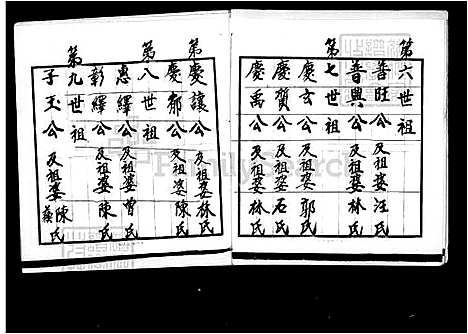 第六世祖
普旺公 及祖婆汪氏
普興公 及祖婆林氏
第七世祖
慶玄公 及祖婆郭氏
慶賀公 及祖婆石氏
慶禹公 及祖婆林氏
第慶讓公 及祖婆林氏
慶郁公 及祖婆陳氏
第八世祖
惠繹公 及祖婆曾氏
彰繹公 及祖婆陳氏
第九世祖
子玉公 及祖婆陳氏 蘇
FamilySearch